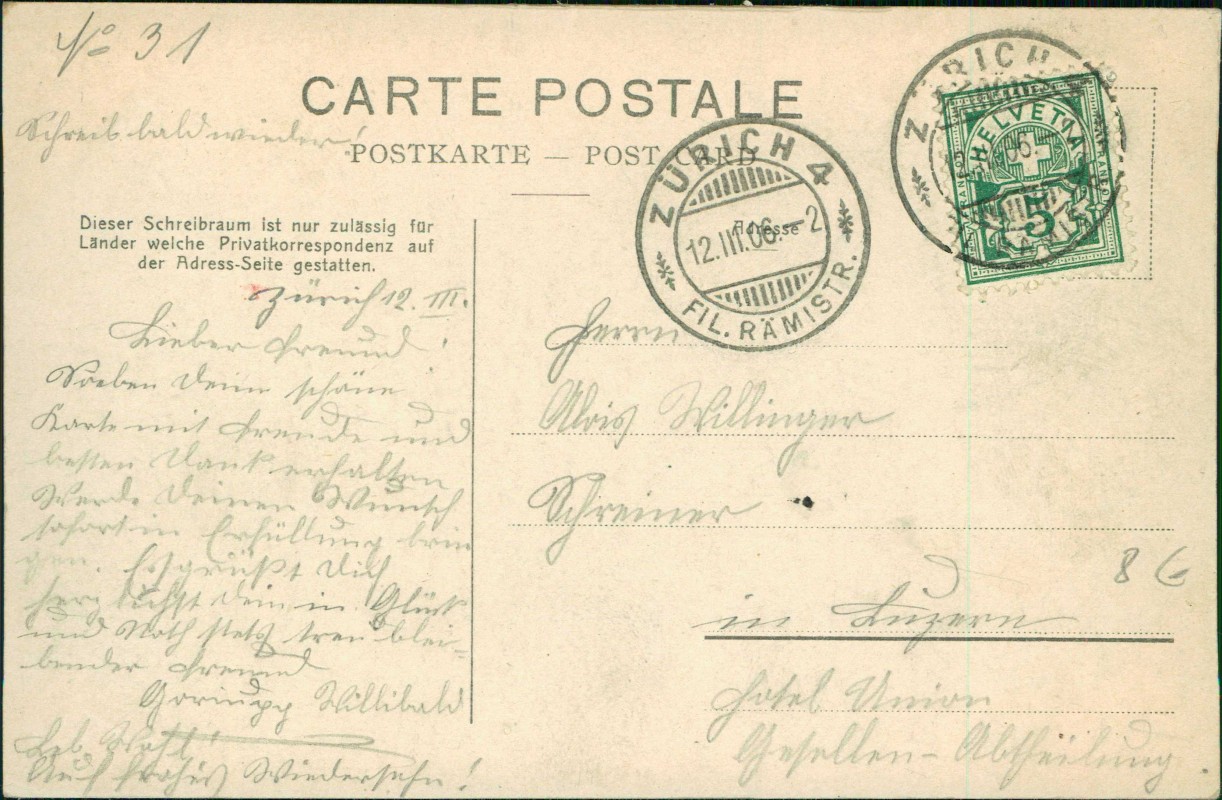 No 31
CARTE POSTALE
Schreib bald wieder!
POSTKARTE — POST CARD
Dieser Schreibraum ist nur zulässig für
Länder welche Privatkorrespondenz auf
der Adress-Seite gestatten.
Zürich 12. III.
Lieber Freund!
Soeben Deine schöne
Karte mit Freude und
besten Dank erhalten
Werde Deinen Wunsch
sofort in Erfüllung brin
gen. Es grüßt Dich
herzlichst Dein in Glück
und Noth stets treu blei-
bender Freund
Willibald
Leb Wohl!
Auf frohes Wiedersehn!
ZÜRICH 4
12.III.06.–2
FIL. RÄMISTR.
Adresse
ZÜRICH
HELVETIA
FRANCO
FRANCO
5
Herrn
Alois Willinger
Schreiner
in Luzern
Hotel Union
Gesellen-Abtheilung